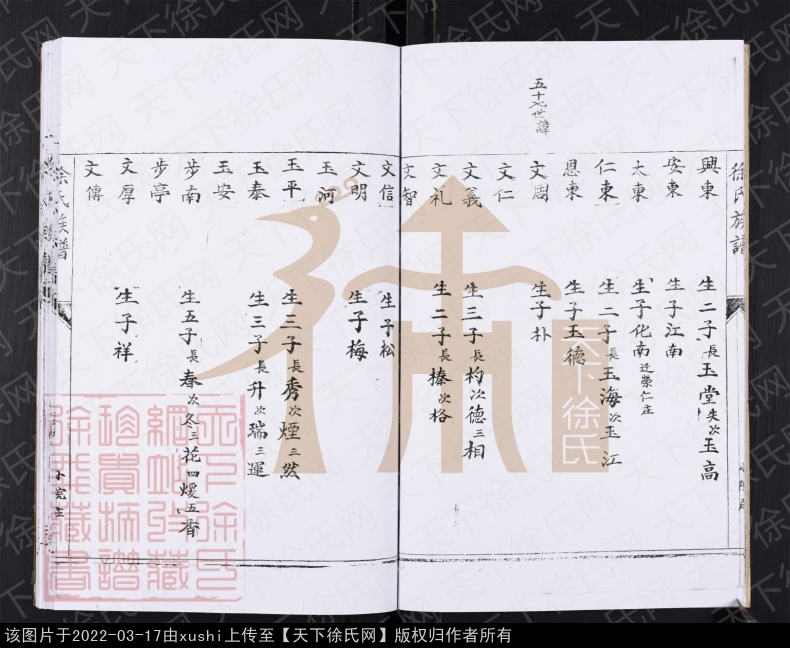 五十七世諱
徐氏族譜
興東 生二子長玉堂失次玉高
安東 生子江南
大東 生子化南迁崇仁庄
仁東 生二子長玉海次玉江
恩東 生子玉德
文周 生子朴
文仁
文義 生三子長杓次德三相
文礼 生二子長榛次格
文智
文信 生子松
文明 生子梅
玉河
玉平 生三子長秀次煙三然
玉泰 生三子長升次瑞三運
玉安
步南 生五子長春次冬三花四煖五香
步亭
文厚 生子祥
文傳
徐氏族譜
天下徐氏
天下徐氏网
该图片于2022-03-17由xushi上传至【天下徐氏网】版权归作者所有